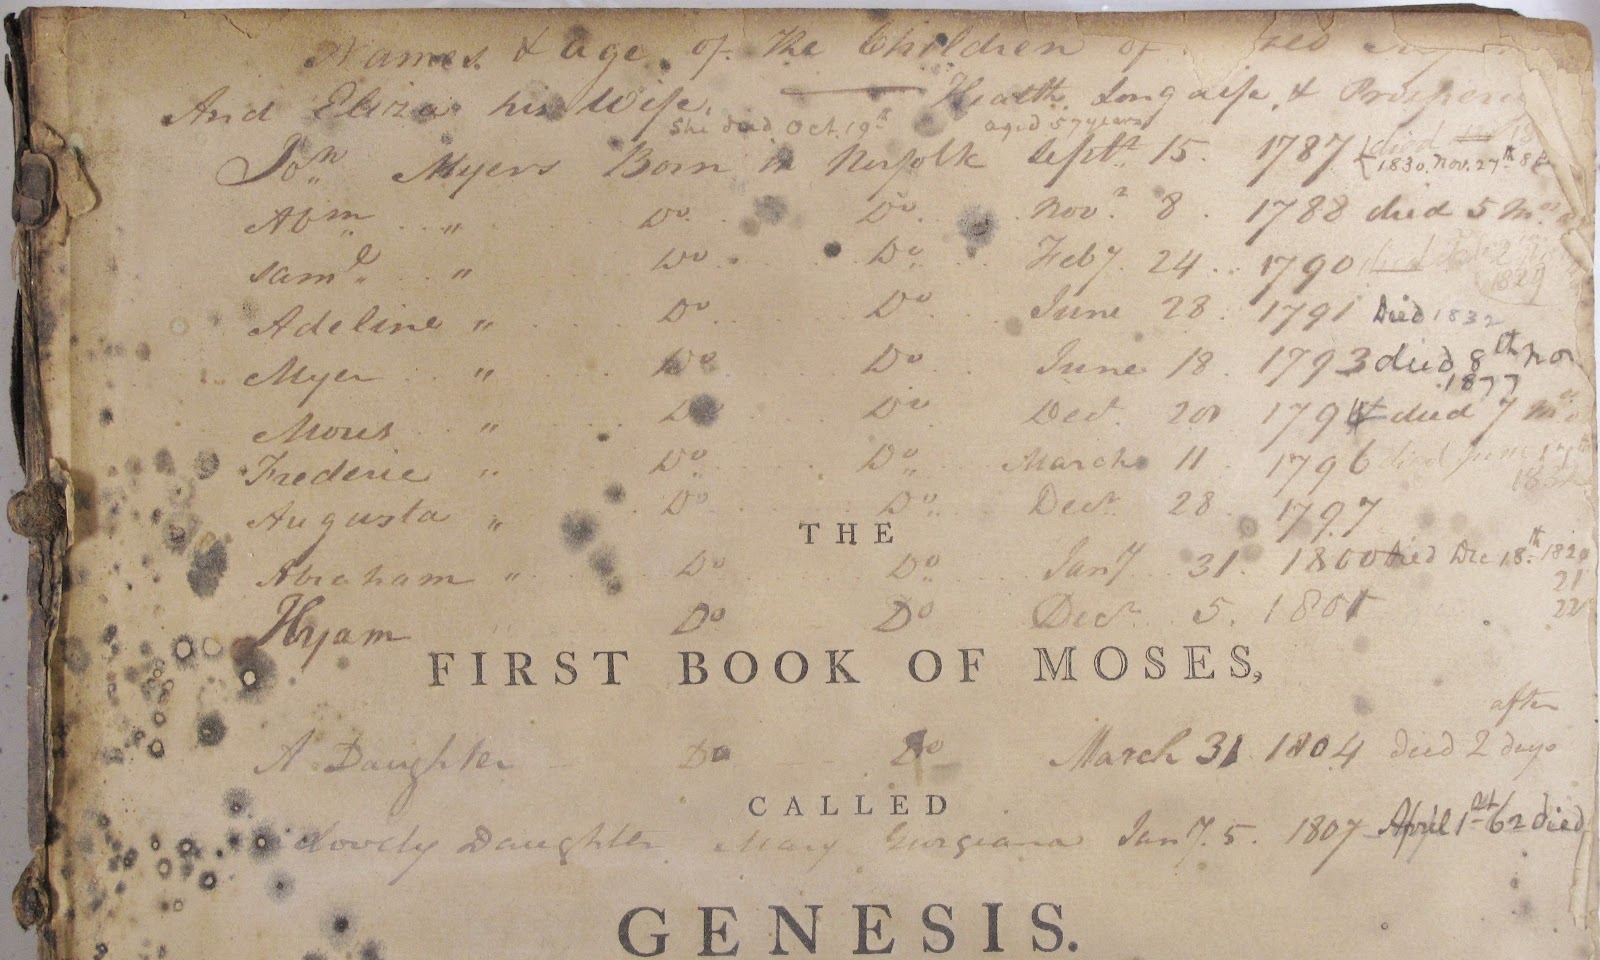 Names & age of the Children of
And Eliza his Wife. Health, Long Life, & Prosperity
She died Oct. 19th aged 57 years
Jon Myers Born in Norfolk Septr 15. 1787 died
1830. Nov. 27th
Abm " Do. Do. Novr 8. 1788 died 5 Mos
Saml " Do Do Feby. 24. 1790 died
1829
Adeline " Do Do June 28. 1791 Died 1832
Myer " Do Do June 18. 1793 died 8th Nov
1877
Moses " Do Do Decr 20 1794 died 7 Mos
Frederic " Do Do March 11 1796 died June 17th
Augusta " Do Do Decr 28. 1797
THE
Abraham " Do Do Jany 31. 1800 died Dec 18th 1820
21
22
Hyam Do Do Decr 5. 1801
FIRST BOOK OF MOSES,
A Daughter Do Do March 31 1804 died after 2 days
CALLED
Lovely Daughter Mary Georgiana Jany. 5. 1807 April 1st 62 died
GENESIS.